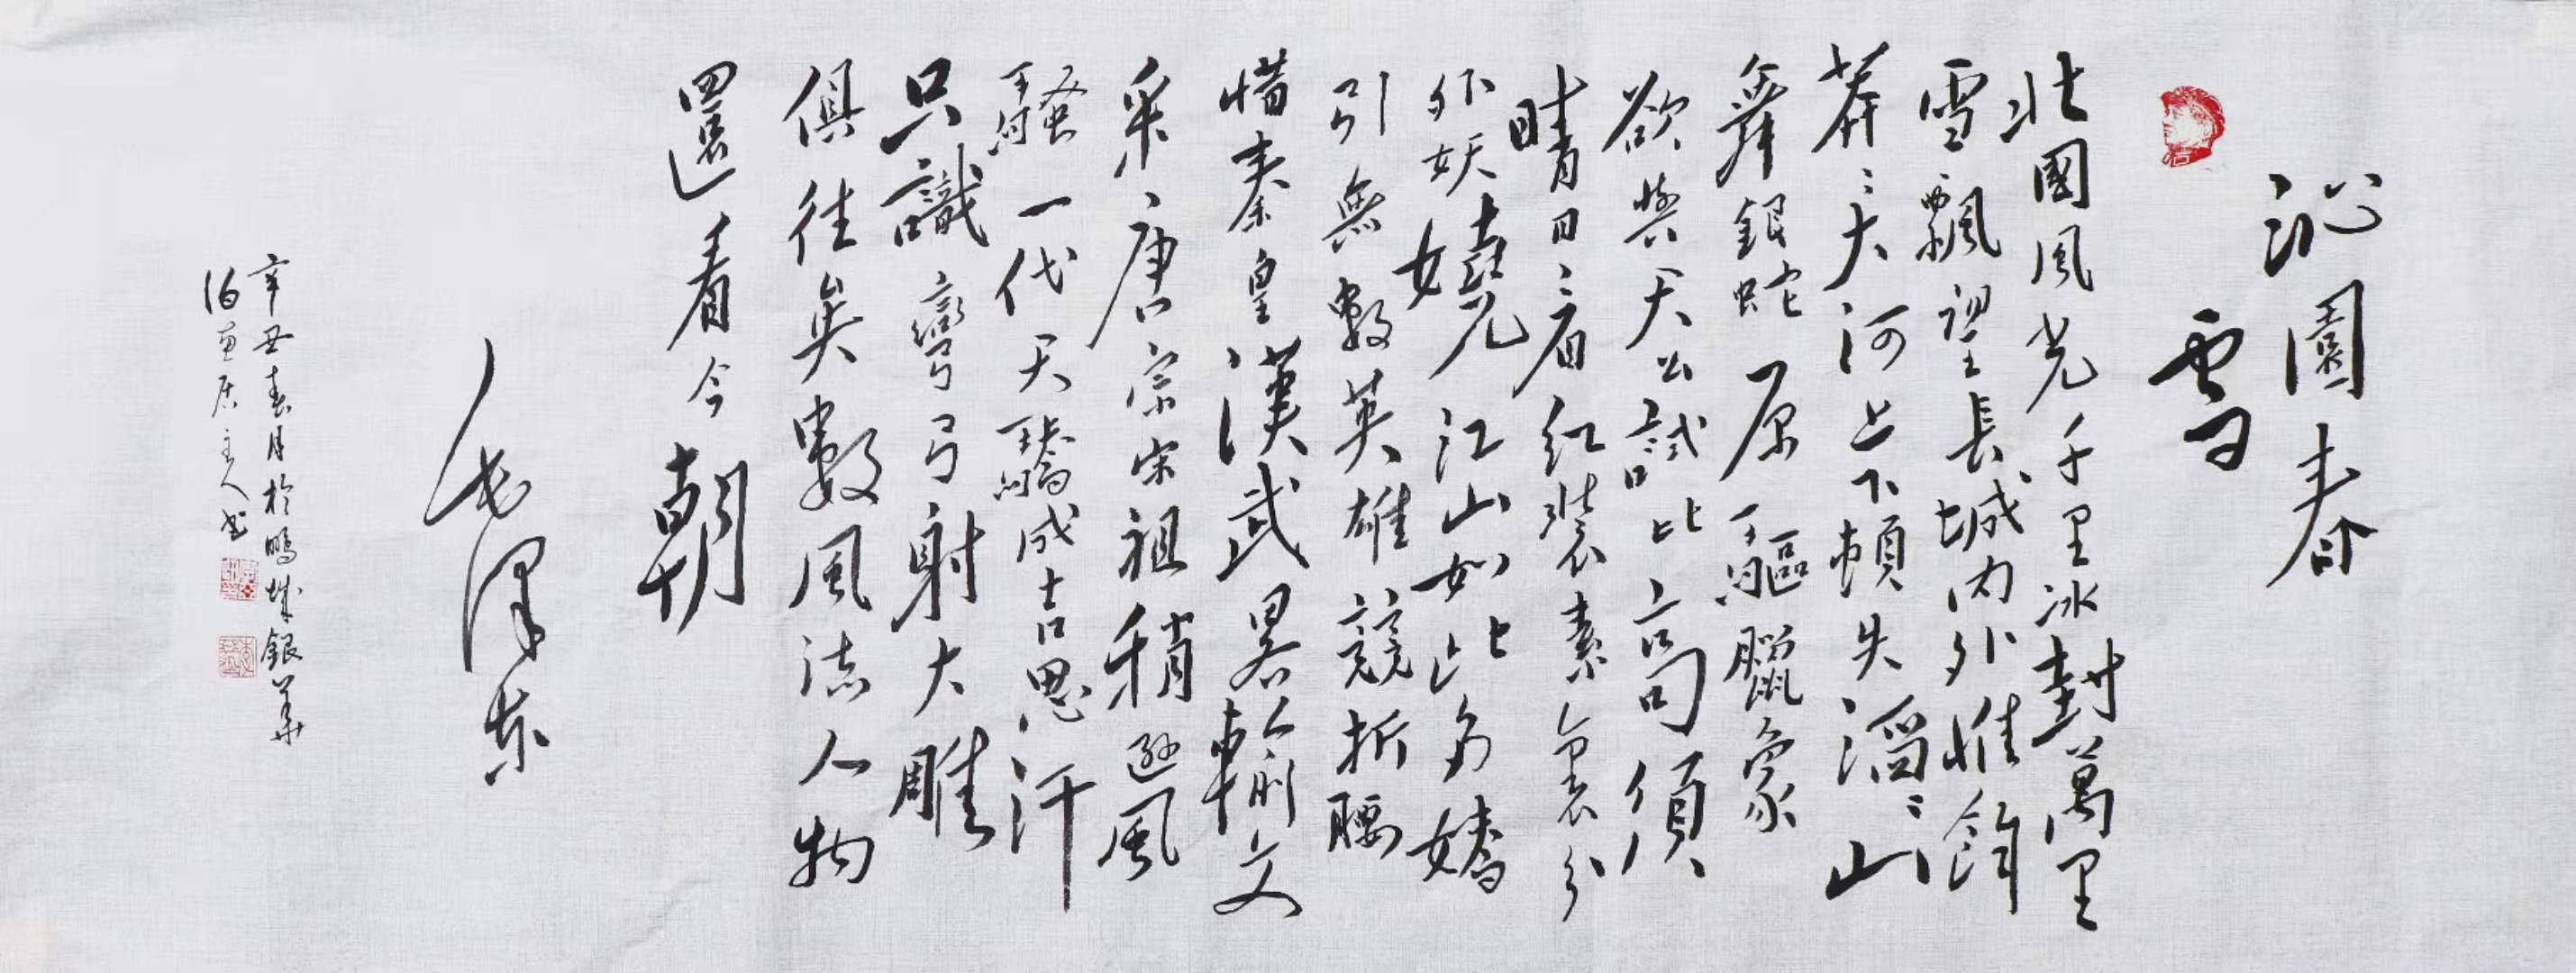 沁園春
雪
北國風光千里冰封萬里
雪飄望長城內外惟餘
莽〻大河上下頓失滔〻山
舞銀蛇原驅臘象
欲與天公試比高須
晴日看紅裝素裹分
外妖嬈江山如此多嬌
引無數英雄競折腰
惜秦皇漢武畧輸文
采唐宗宋祖稍遜風
騷一代天驕成吉思汗
只識彎弓射大雕
俱往矣數風流人物
還看今朝
毛澤東
辛丑春月於鵬城銀華
居主人書